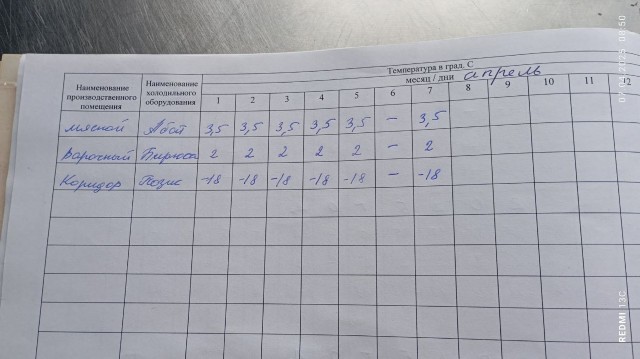 Температура в град. С
месяц / дни апрель
Наименование производственного помещения Наименование холодильного оборудования 1 2 3 4 5 6 7 8 9 10 11 12
мясной Абой 3,5 3,5 3,5 3,5 3,5 – 3,5
Варочный Бирюса 2 2 2 2 2 – 2
Коридор Позис -18 -18 -18 -18 -18 – -18
REDMI 13C